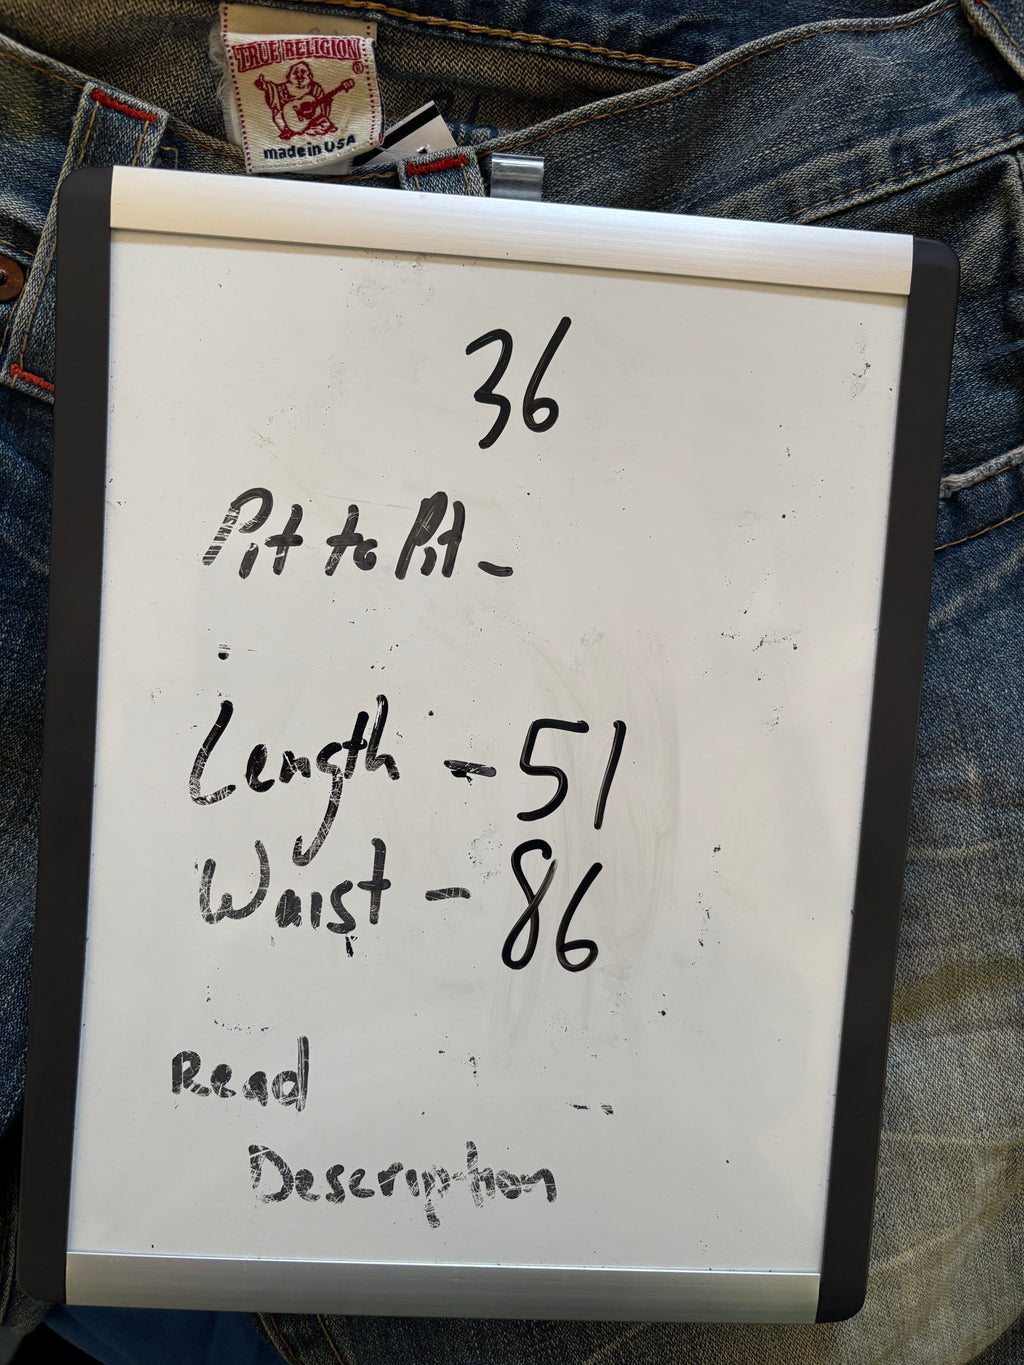 TRUE RELIGION
®
made in USA
36
Pit to Pit -
Length - 51
Waist - 86
Read
Description